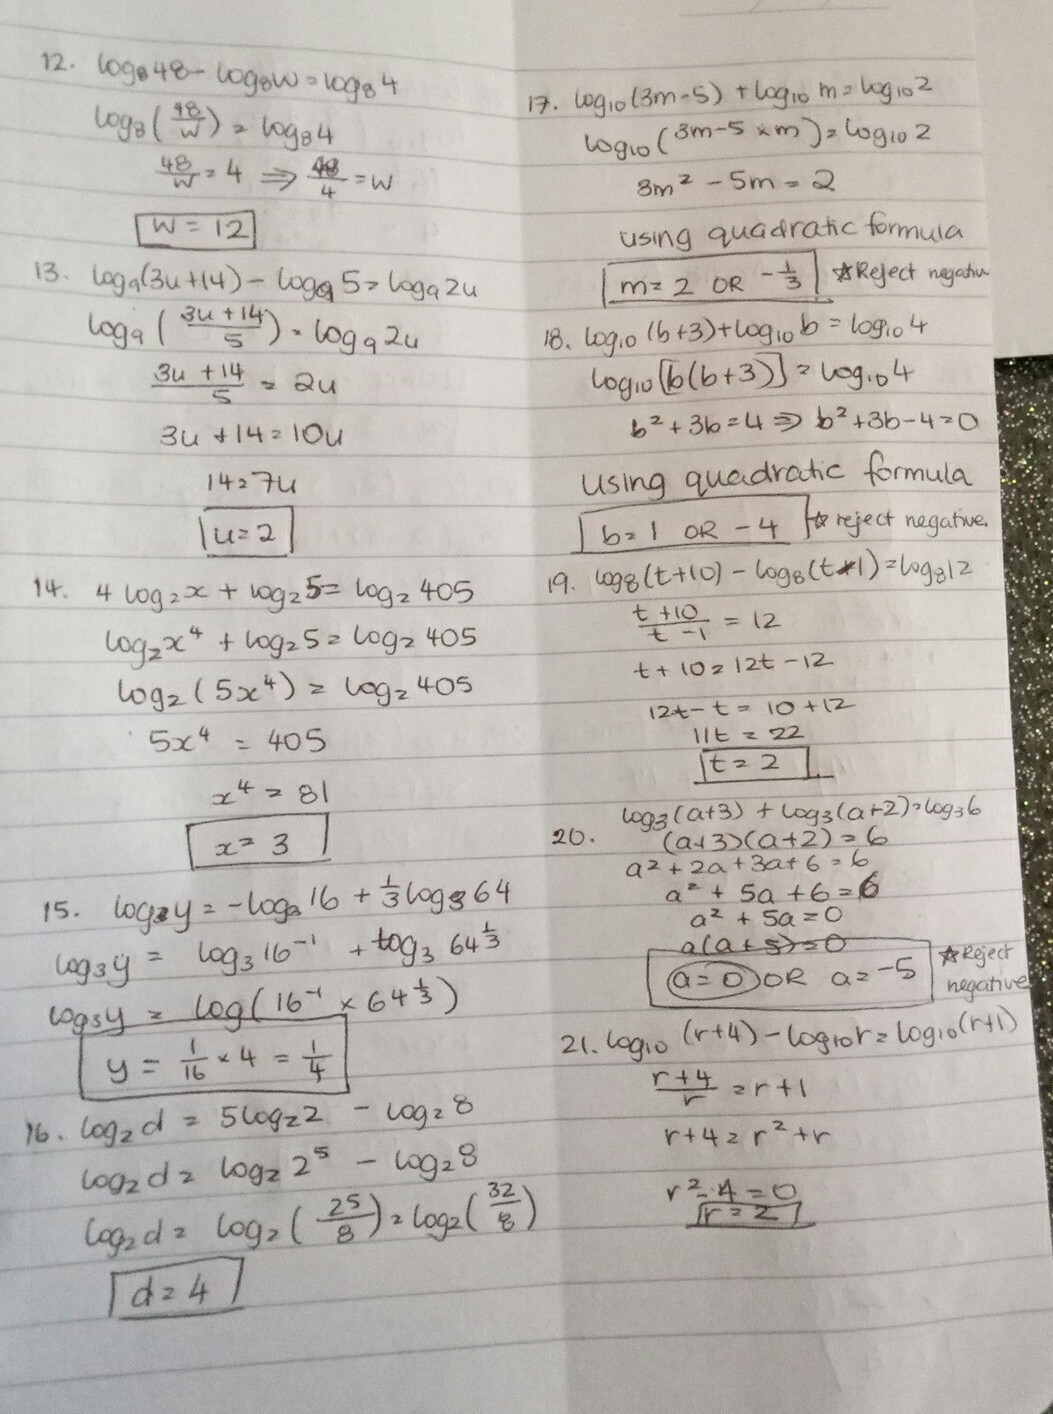 12. log₈48 - log₈w = log₈4
log₈(48/w) = log₈4
48/w = 4 ⇒ 48/4 = w
w = 12
13. log₉(3u+14) - log₉5 = log₉2u
log₉(3u+14/5) = log₉2u
3u+14/5 = 2u
3u+14=10u
14=7u
u=2
14. 4 log₂x + log₂5 = log₂405
log₂x⁴ + log₂5 = log₂405
log₂(5x⁴) = log₂405
5x⁴ = 405
x⁴ = 81
x = 3
15. log₃y = -log₃16 + 1/3 log₃64
log₃y = log₃16⁻¹ + log₃64^1/3
log₃y = log(16⁻¹ × 64^1/3)
y = 1/16 × 4 = 1/4
16. log₂d = 5log₂2 - log₂8
log₂d = log₂2⁵ - log₂8
log₂d = log₂(25/8) = log₂(32/8)
d = 4
17. log₁₀(3m-5) + log₁₀m = log₁₀2
log₁₀(3m-5 × m) = log₁₀2
3m² - 5m = 2
using quadratic formula
m = 2 OR -1/3 ☆Reject negativ
18. log₁₀(b+3) + log₁₀b = log₁₀4
log₁₀[b(b+3)] = log₁₀4
b²+3b=4 ⇒ b²+3b-4=0
Using quadratic formula
b=1 OR -4 ☆ reject negative.
19. log₈(t+10) - log₈(t-1) = log₈12
t+10/t-1 = 12
t+10 = 12t-12
12t-t = 10+12
11t = 22
t = 2
log₃(a+3) + log₃(a+2) = log₃6
20. (a+3)(a+2) = 6
a²+2a+3a+6 = 6
a² + 5a + 6 = 6
a² + 5a = 0
a(a+5)=0
a=0 OR a=-5 ☆Reject
negative
21. log₁₀(r+4) - log₁₀r = log₁₀(r+1)
r+4/r = r+1
r+4 = r²+r
r²-4=0
r=2